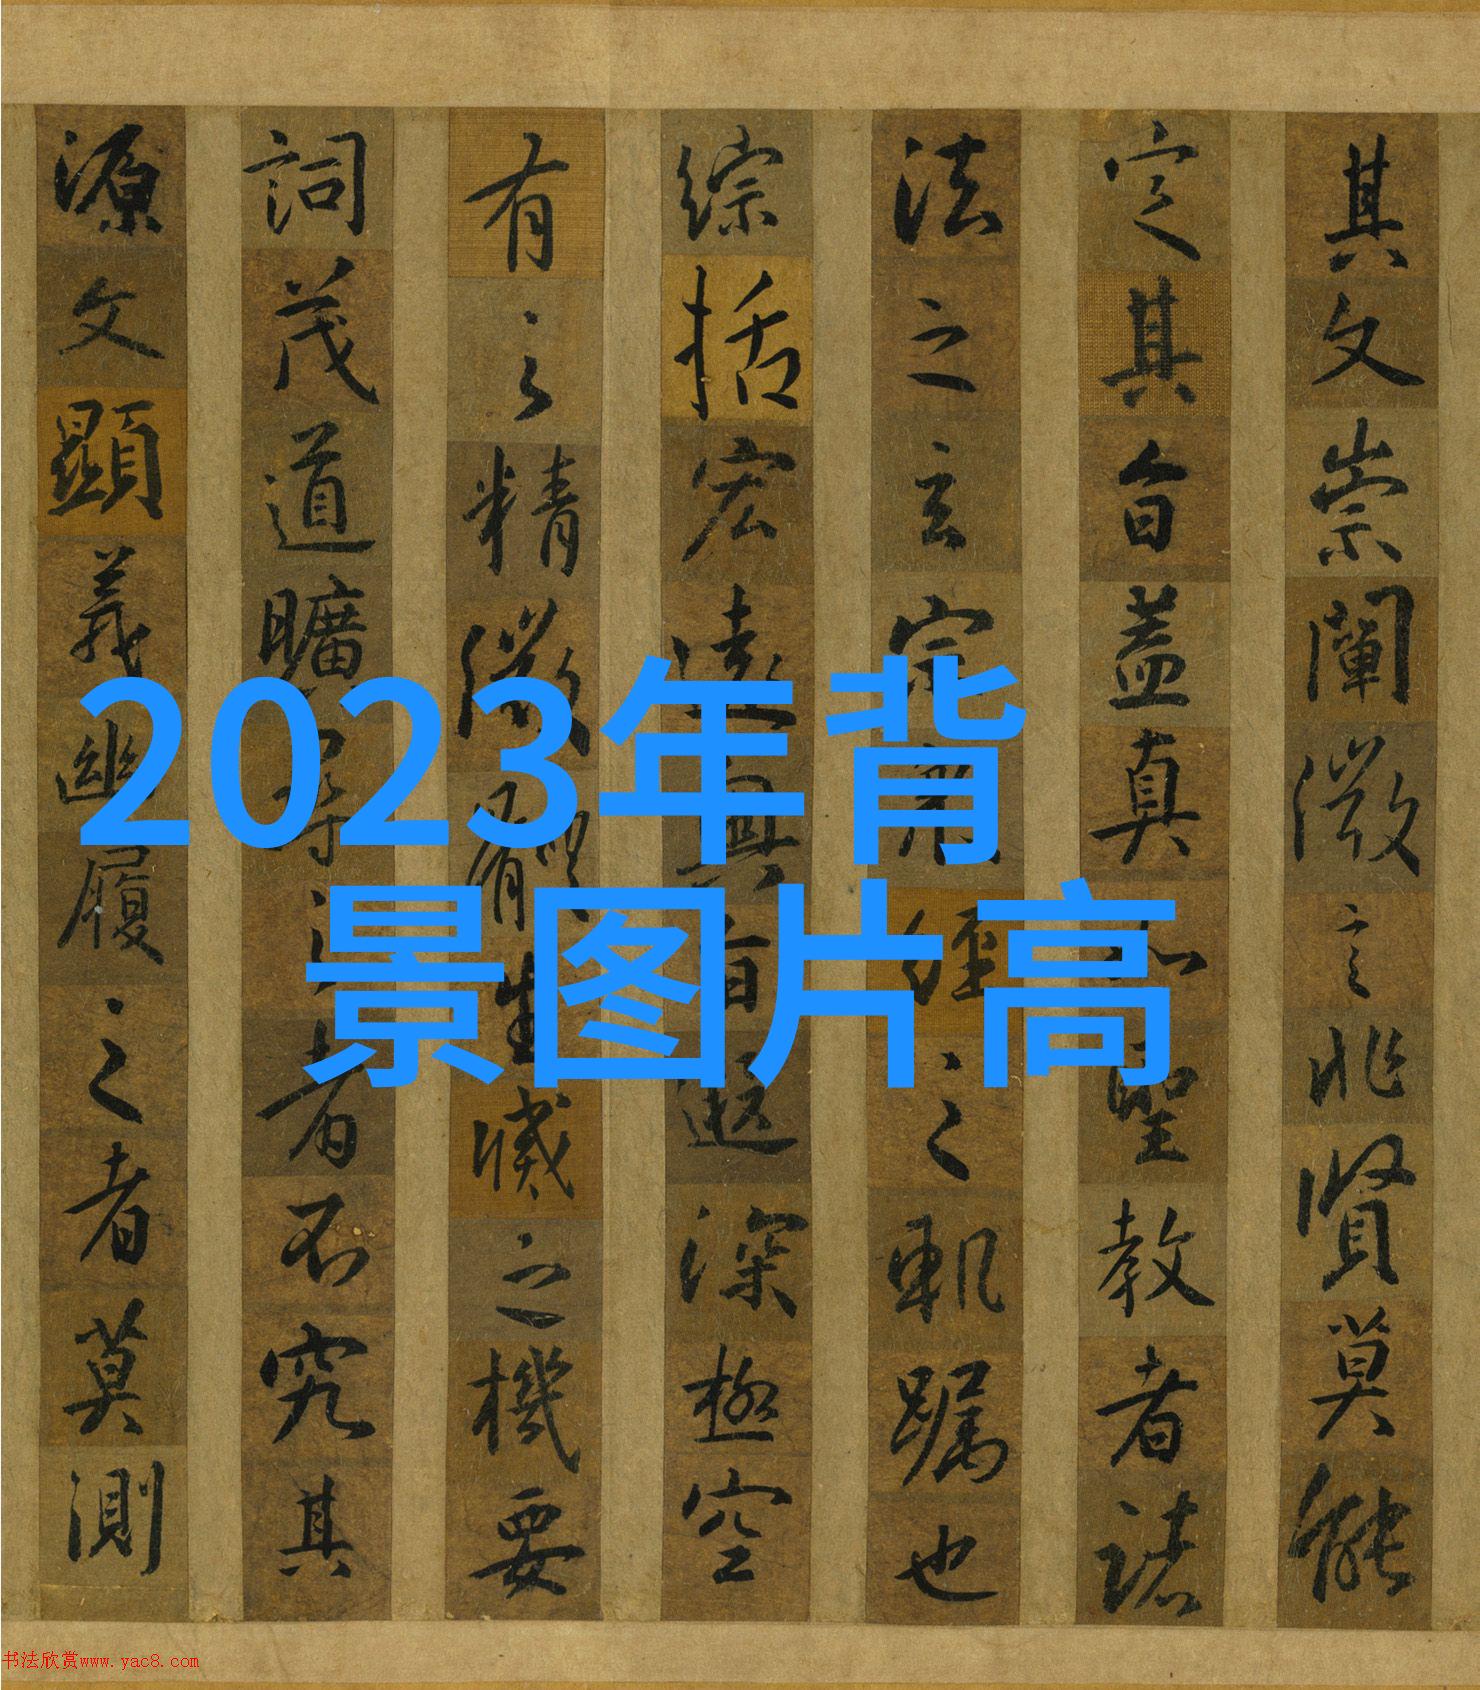 其文崇闡微言非賢莫能
定其旨蓋真如聖教者諸
法之玄宗眾經之軌躅也
綜括宏遠奧旨遐深極空
有之精微體生滅之機要
詞茂道曠尋之者不究其
源文顯義幽履之者莫測
2023年背
景图片高
书法欣赏www.yac8.com